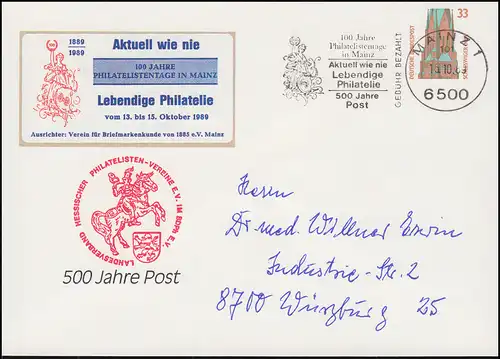 1889
1989
Aktuell wie nie
100 JAHRE
PHILATELISTENTAGE IN MAINZ
Lebendige Philatelie
vom 13. bis 15. Oktober 1989
Ausrichter: Verein für Briefmarkenkunde von 1885 e.V. Mainz
100 Jahre
Philatelistentage
in Mainz
Aktuell wie nie
Lebendige
Philatelie
500 Jahre
Post
GEBÜHR BEZAHLT
33
DEUTSCHE BUNDESPOST
MAINZ 1
6500
LANDESVERBAND HESSISCHER PHILATELISTEN-VEREINE E.V. IM BDPh E.V.
500 Jahre Post
Herrn
Dr. med. Willner Erwin
Industrie-Str. 2
8700 Würzburg 25